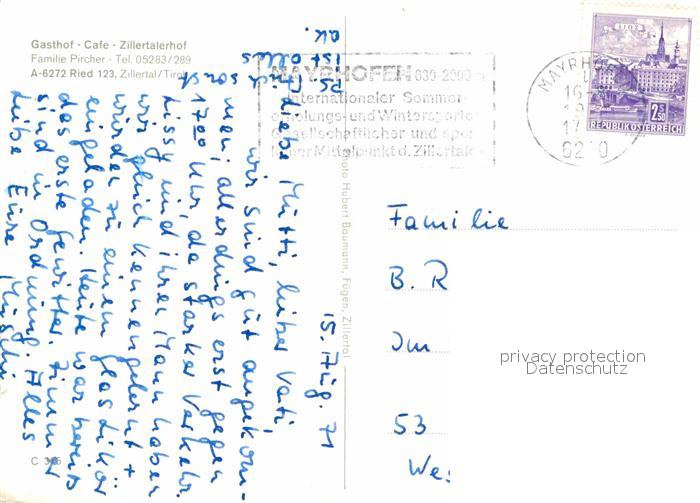 Gasthof - Cafe - Zillertalerhof
Familie Pircher - Tel. 05283/289
A-6272 Ried 123, Zillertal/Tirol
15. Aug. 71
Liebe Mutti, lieber Vati,
wir sind gut angekom-
men, allerdings erst gegen
17⁰⁰ Uhr, da starker Verkehr.
Lissy und ihren Mann haben
wir gleich kennengelernt +
wurden zu einem Glas Likör
eingeladen. Heute war bereits
das erste Gewitter. Zimmer
sind in Ordnung. Alles
Liebe Eure
PS.
ist alles
ok.
C 365
Foto Hubert Baumann, Fügen, Zillertal
MAYRHOFEN 630-2000 m
Internationaler Sommer-
erholungs- und Wintersporte
Gesellschaftlicher und spor
licher Mittelpunkt d. Zillertale
MAYRHO
16
17
6290
LINZ
2.50
REPUBLIK ÖSTERREICH
Familie
B. R
Im
53
We
privacy protection
Datenschutz